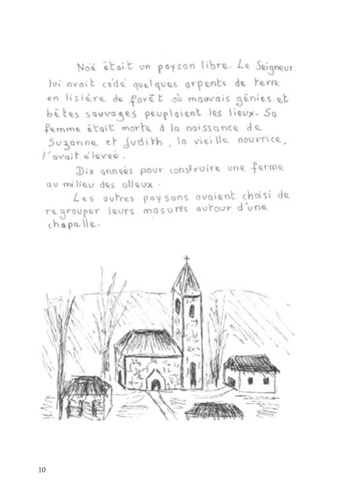 Noë était un paysan libre. Le Seigneur
lui avait cédé quelques arpents de terre
en lisière de forêt où mauvais génies et
bêtes sauvages peuplaient les lieux. Sa
femme était morte à la naissance de
Suzanne et Judith, la vieille nourrice,
l'avait élevée.
Dix années pour construire une ferme
au milieu des alleux.
Les autres paysans avaient choisi de
regrouper leurs masures autour d'une
chapelle.
10